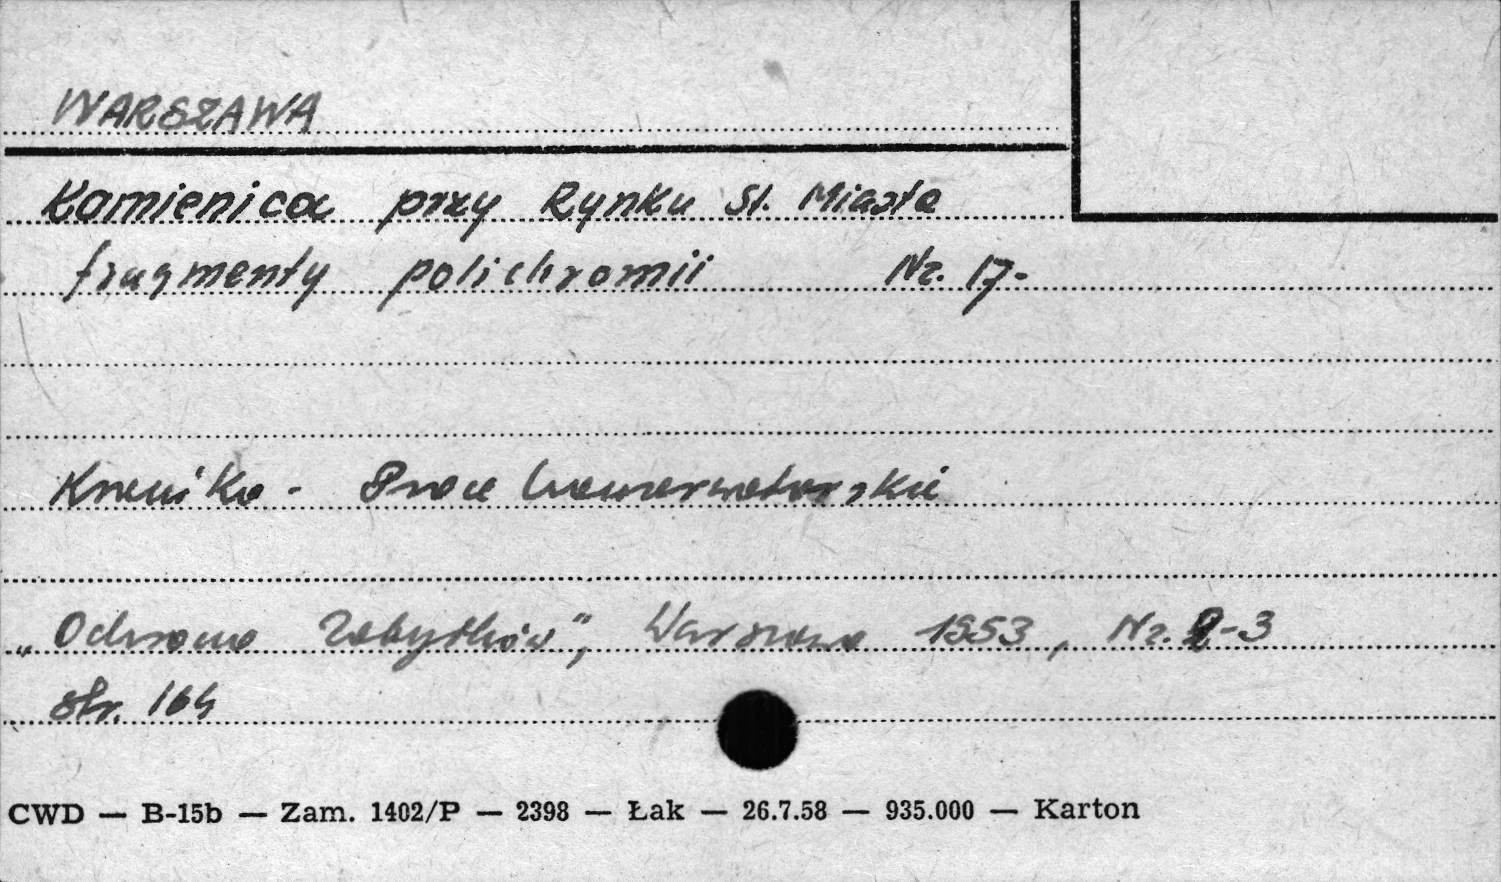 WARSZAWA
Kamienica przy Rynku St. Miasta
fragmenty polichromii Nr. 17-
Kronika - Prace konserwatorskie
„Ochrona Zabytków", Warszawa 1953, Nr. 2-3
str. 164
CWD — B-15b — Zam. 1402/P — 2398 — Łak — 26.7.58 — 935.000 — Karton